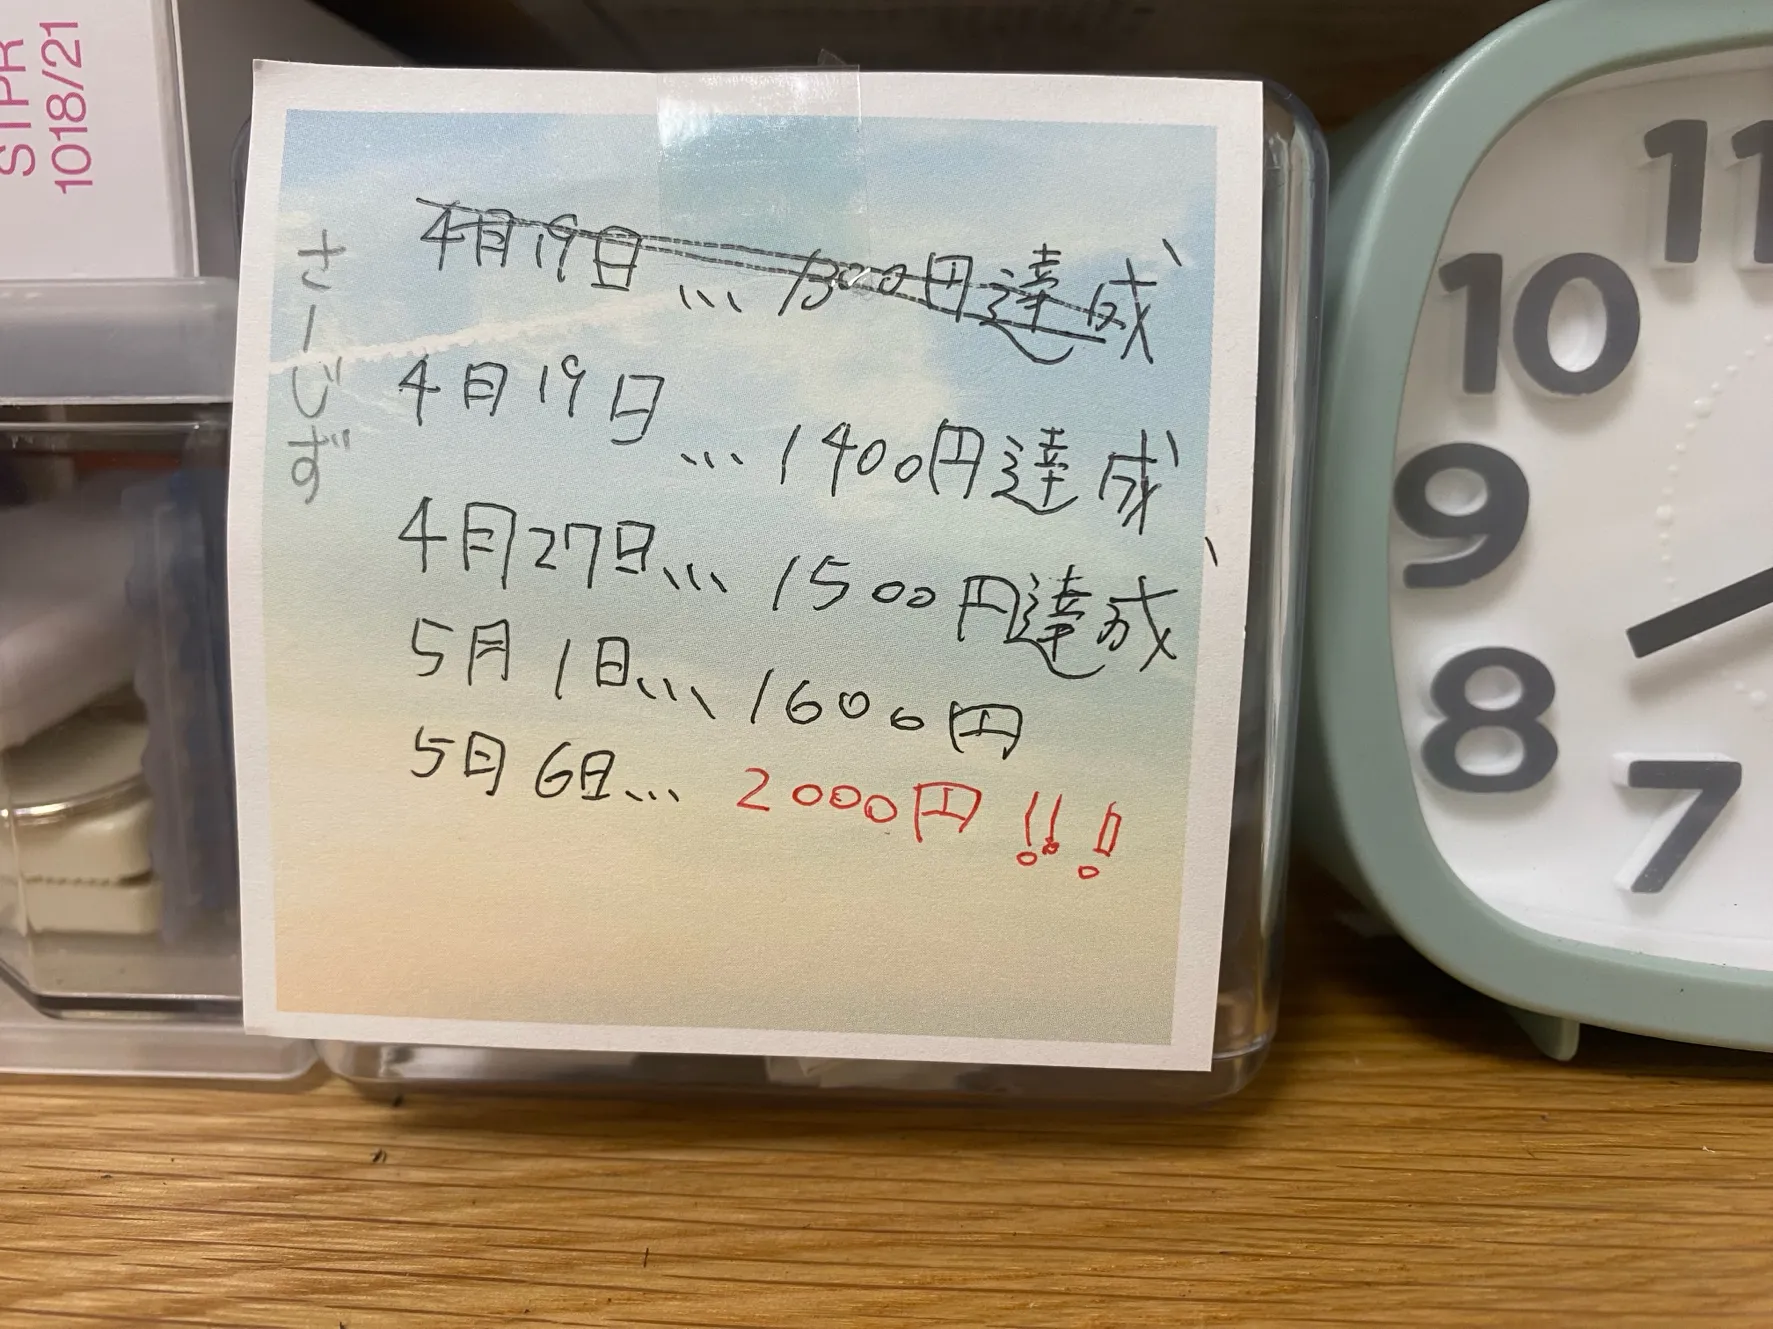 STPR
1018/21
さーじず
4月19日...1300円達成
4月19日...1400円達成
4月27日...1500円達成
5月1日...1600円
5月6日...2000円!!!
11
10
9
8
7